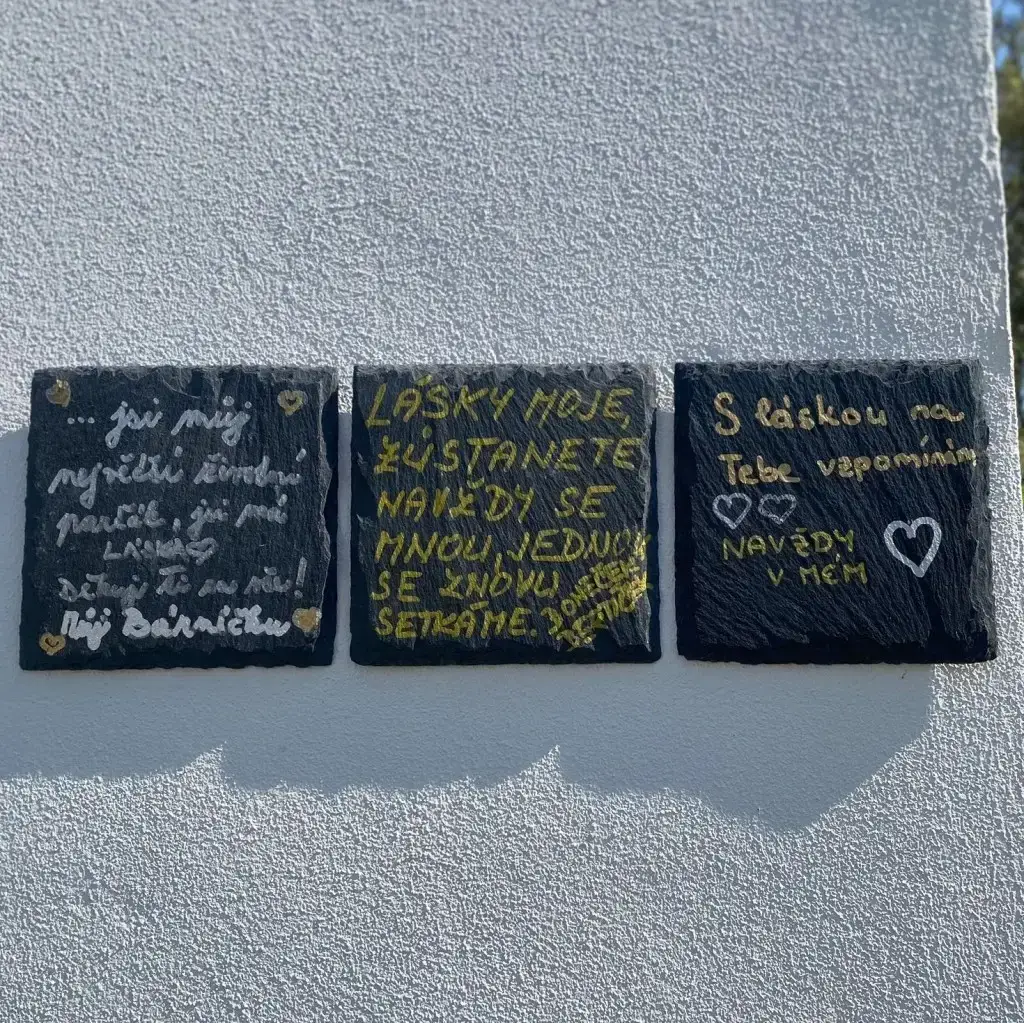 ... jsi můj
největší životní
parťák, jsi má
LÁSKA
Děkuji Ti za vše!
Můj Bárničku
LÁSKY MOJE,
ZŮSTANETE
NAVŽDY SE
MNOU, JEDNOU
SE ZNOVU
SETKÁME.
S láskou na
Tebe vzpomínám
NAVŽDY
V MÉM